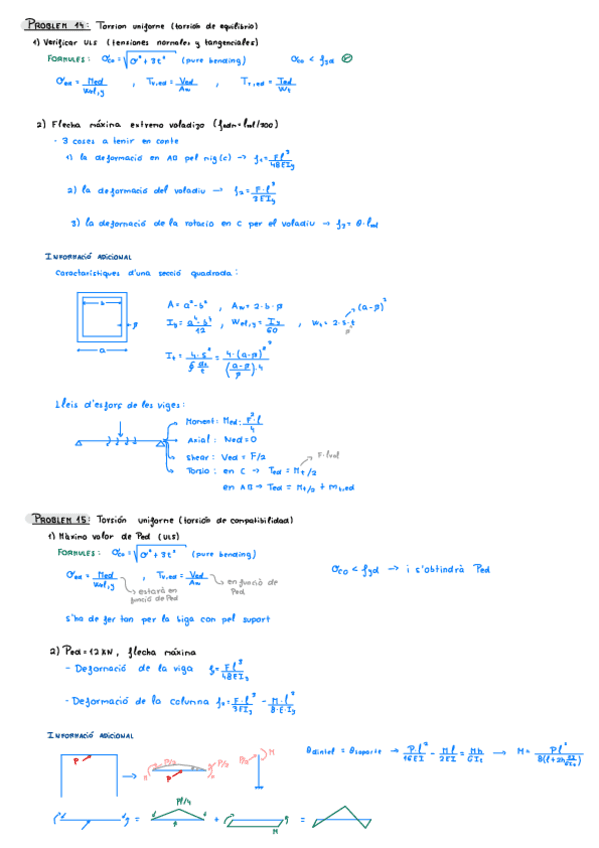 PROBLEM 14: Torsion uniforme (torsión de equilibrio)
1) Verificar ULS (tensiones normales y tangenciales)
FORMULES: σco = √σ² + 3τ² (pure bending) σco < fyd
σed = Med / Wel,y , τv,ed = Ved / Aw , τt,ed = Ted / Wt
2) Flecha máxima extremo voladizo (fadm = lvol/300)
- 3 coses a tenir en conte
1) la deformació en AB pel mig (c) → f1 = F l³ / 48EIy
2) la deformació del voladiu → f2 = F·l³ / 3EIy
3) la deformació de la rotació en C per el voladiu → f3 = θ·lvol
INFORMACIÓ ADICIONAL
Característiques d'una secció quadrada:
b
a
A = a² - b² , Aw = 2·b·
Iy = a⁴ - b⁴ / 12 , Wel,y = Iy / 60 , Wt = 2·s·t
It = 4·s² / ∮ ds/t
Lleis d'esforç de les vigues:
Moment: Med = F·l / 4
Axial: Ned = 0
Shear: Ved = F/2
Torsio: en C → Ted = Mt/2 F·lvol
en AB → Ted = Mt/2 + mt,ed
PROBLEM 15: Torsión uniforme (torsión de compatibilidad)
1) Màximo valor de Ped (ULS)
FORMULES: σco = √σ² + 3τ² (pure bending)
σed = Med / Wel,y , τv,ed = Ved / Aw σco < fyd → i s'obtindrà Ped
estarà en funció de Ped
en funció de Ped
s'ha de fer tan per la biga com pel suport
2) Ped = 12 KN, flecha màxima
- Deformació de la viga f1 = F l³ / 48EIy
- Deformació de la columna f2 = F·l³ / 3EIy - M·l² / 8·E·Iy
INFORMACIÓ ADICIONAL
θdintel = θsoporte → P·l² / 16EI - Ml / 2EI = Mh / GIt → M =
P P/2 P P/2 M
Pl/4
= + =
M